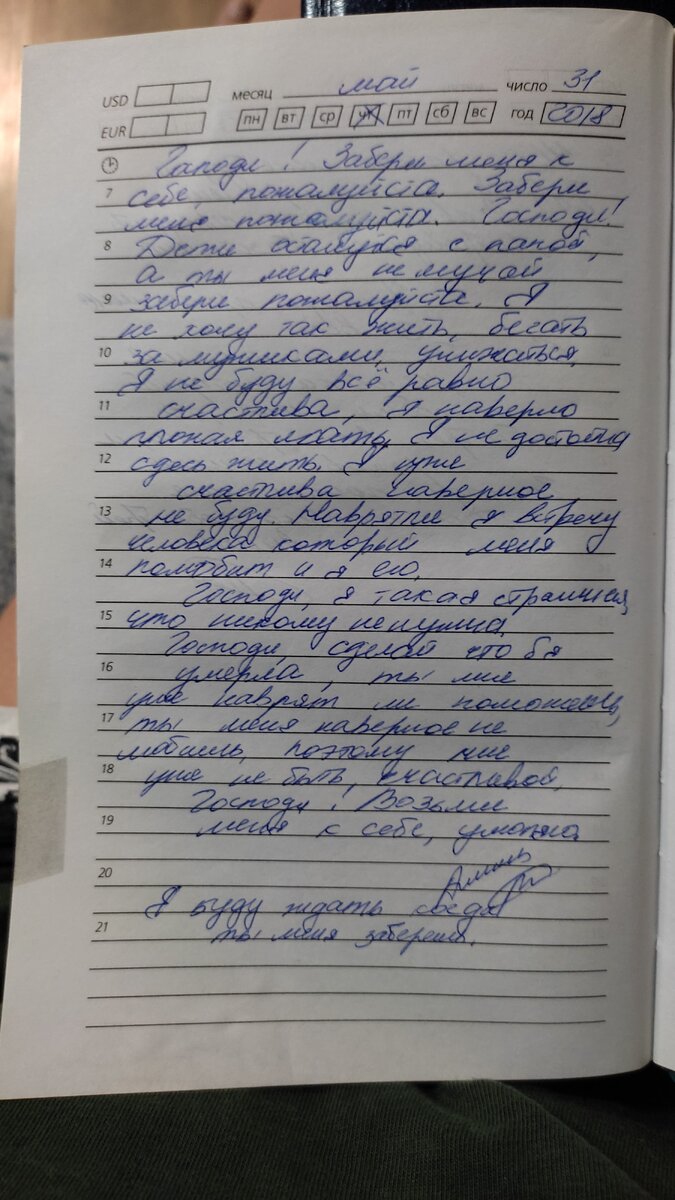 USD месяц май число 31
EUR пн вт ср чт пт сб вс год 2018
Гаподи! Забери меня к
7 себе, пожалуйста. Забери
меня пожалуйста. Господи!
8 Дети останутся с папой,
а ты меня не мучай
9 забери пожалуйста. Я
не хочу так жить, бегать
10 за мужиками, унижаться,
Я не буду всё равно
11 счастлива, я наверно
плохая мать. Я не достойна
12 сдесь жить. Я уже
счастлива наверное
13 не буду. Наврятли я встречу
человека который меня
14 полюбит и я его.
Господи, я такая страшная,
15 что никому ненужна.
Господи, сделай что б я
16 умерла, ты мне
уже наврят ли поможешь,
17 ты меня наверное не
любишь, поэтому мне
18 уже не быть, счастливой,
Господи! Возьми
19 меня к себе, умоляю.
20 Аминь
Я буду ждать когда
21 ты меня заберешь.